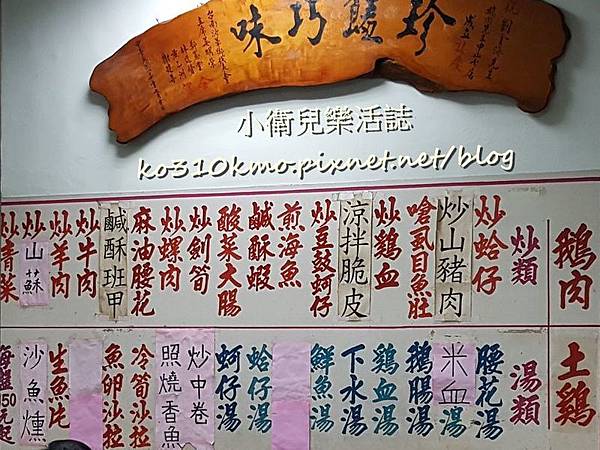 珍饈巧味
小衛兒樂活誌
ko310kmo.pixnet.net/blog
鵝肉
炒類
炒蛤仔
炒山豬肉
嗆虱目魚肚
炒雞血
涼拌脆皮
炒豆豉蚵仔
煎海魚
鹹酥蝦
酸菜大腸
炒劍筍
炒螺肉
麻油腰花
鹹酥班甲
炒牛肉
炒羊肉
炒山蘇
炒青菜
土雞
湯類
腰花湯
米血湯
鵝腸湯
雞血湯
下水湯
鮮魚湯
蛤仔湯
蚵仔湯
炒中卷
照燒香魚
冷筍沙拉
魚卵沙拉
生魚片
沙魚燻
150元起